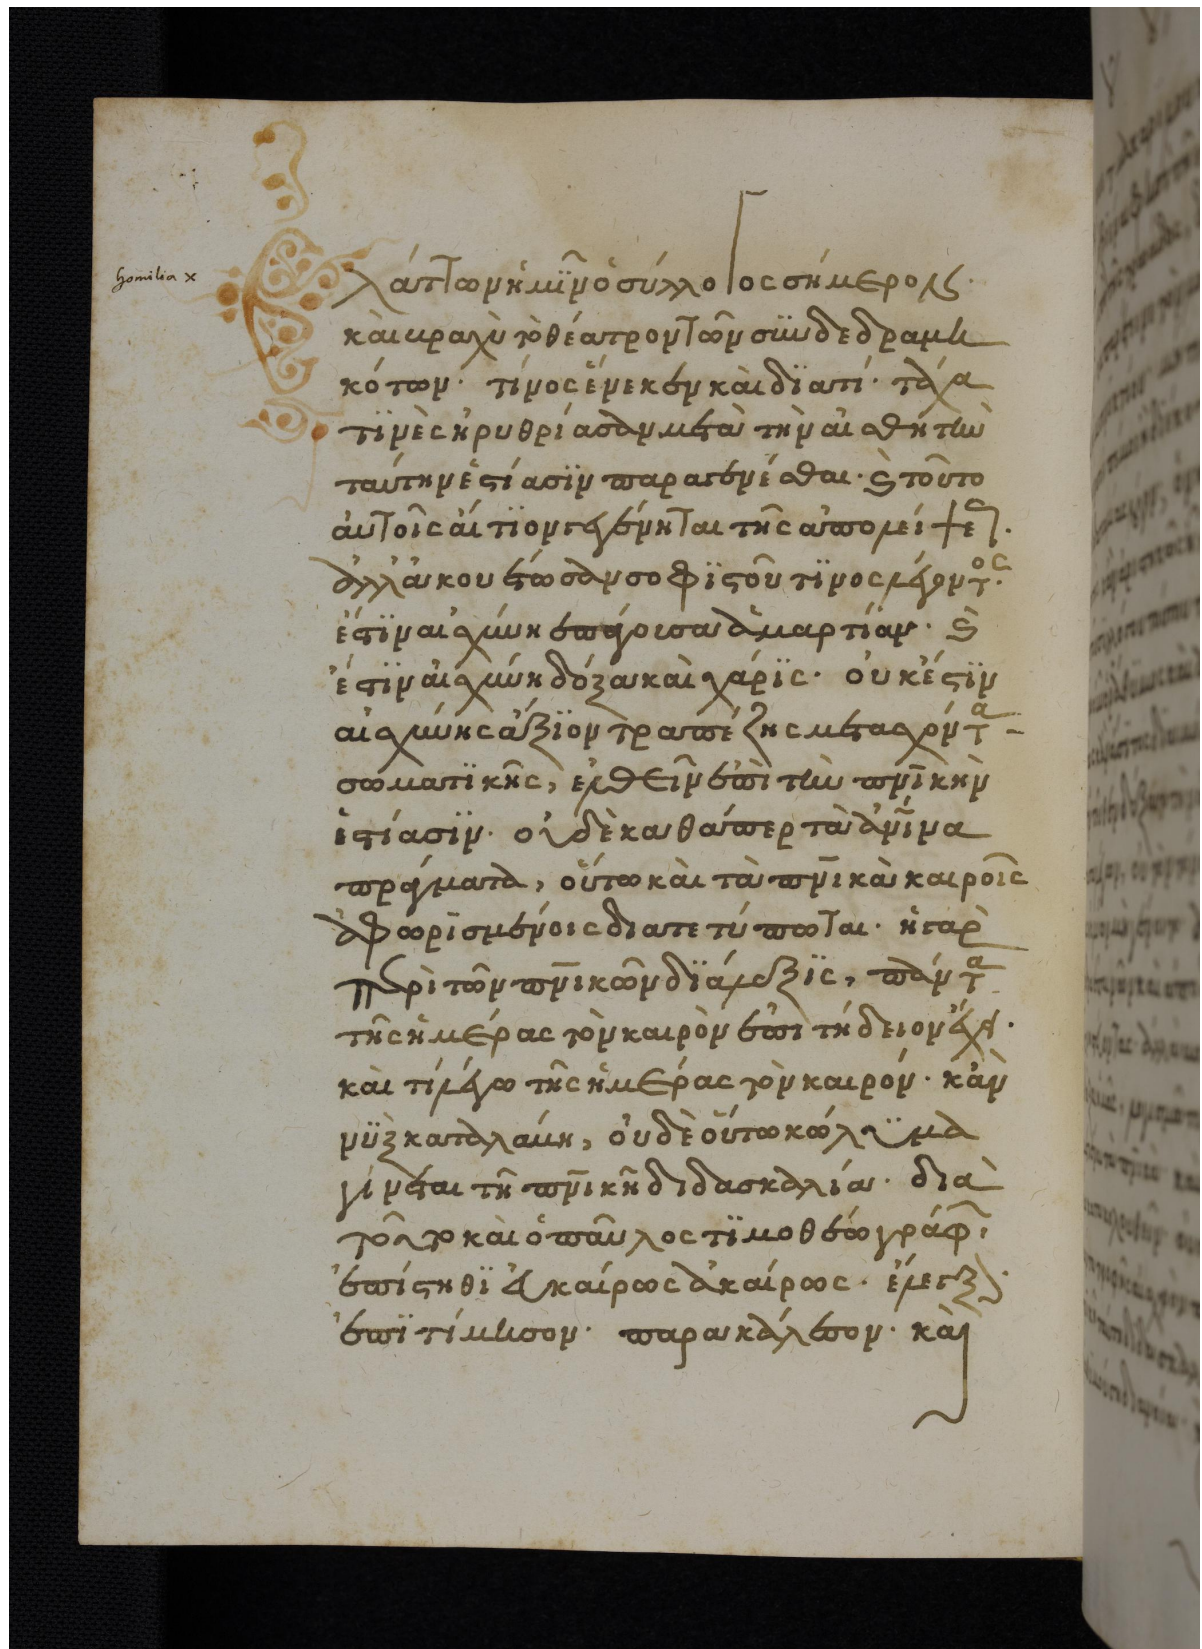 homilia x
Ἐλάττων ἡμῖν ὁ σύλλογος σήμερον
καὶ βραχὺ τὸ θέατρον τῶν συνδεδραμη
κότων· τίνος ἕνεκεν καὶ διατί· τάχα
τινὲς ἠρυθρίασαν μετὰ τὴν αἰσθητὴν
ταύτην ἑστίασιν παραγενέσθαι· καὶ τοῦτο
αὐτοῖς αἴτιον γεγένηται τῆς ἀπολείψεως·
ἀλλ' ἀκουέτωσαν σοφιστοῦ τινος λέγοντος·
ἔστιν αἰσχύνη ἐπάγουσα ἁμαρτίαν· καὶ
ἔστιν αἰσχύνη δόξα καὶ χάρις· οὐκ ἔστιν
αἰσχύνης ἄξιον τραπέζης μετασχόντα
σωματικῆς, ἐλθεῖν ἐπὶ τὴν πνικὴν
ἑστίασιν· οὐδὲ καθάπερ τὰ ἀνινα
πράγματα, οὕτω καὶ τὰ πνικὰ καιροῖς
ἀφωρισμένοις διατετύπωται· ἡ γὰρ
περὶ τῶν πνικῶν διάλεξις, πάντα
τῆς ἡμέρας τὸν καιρὸν ἐπιτήδειον ἔχει·
καὶ τί λέγω τῆς ἡμέρας τὸν καιρόν· κἂν
νὺξ καταλάβη, οὐδὲ οὕτω κώλυμα
γίνεται τῆ πνικῆ διδασκαλία· διὰ
τοῦτο καὶ ὁ παῦλος τιμοθέω γράφων·
ἐπίστηθι εὐκαίρως ἀκαίρως· ἔλεγξον·
ἐπιτίμησον· παρακάλεσον· καὶ